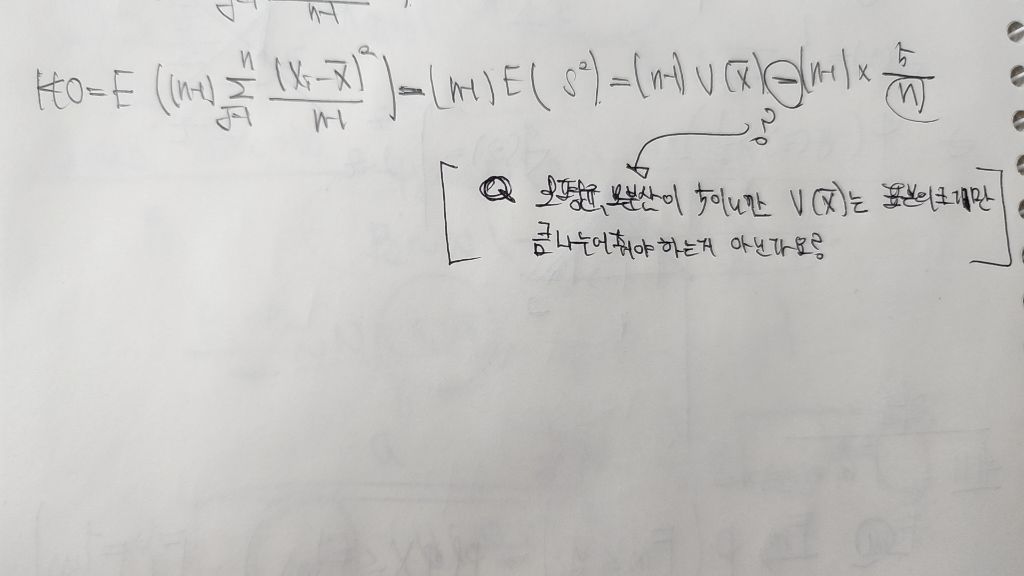 n-1
= E ((n-1) \sum_{j=1}^{n} \frac{(X_i - \overline{X})^2}{n-1}) = (n-1) E( S^2 ) = (n-1) V(\overline{X}) = (n-1) × \frac{5}{n}
?
Q 모평균, 모분산이 5이니깐 V(\overline{X})는 표본의크기만
큼 나누어줘야 하는거 아닌가요?